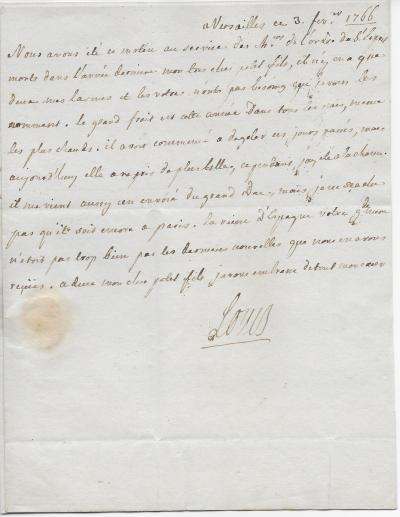 a Versailles ce 3. fev.er 1766
Nous avons été ce matin au service des Ch.ers de l'ordre du S.t Esprit
morts dans l'année derniere mon tres cher petit fils, il n'y en a que
deux mes larmes et les votres n'ont pas besoing que je vous les
nomment. le grand froit est cette année dans tous les païs, meme
les plus chauds. il avoit commencé a degeler ces jours passés, mais
aujourd'huy elle a repris de plus belle, cependant j'ay été a la chasse.
il me vient aussy un envoié du grand Duc, mais je ne scache
pas qu'il soit encore a paris. la reine d'Espagne votre g.de mere
n'etoit pas trop bien par les dernieres nouvelles que nous en avons
reçües. adieu mon cher petit fils, je vous embrasse de tout mon cœur
Louis